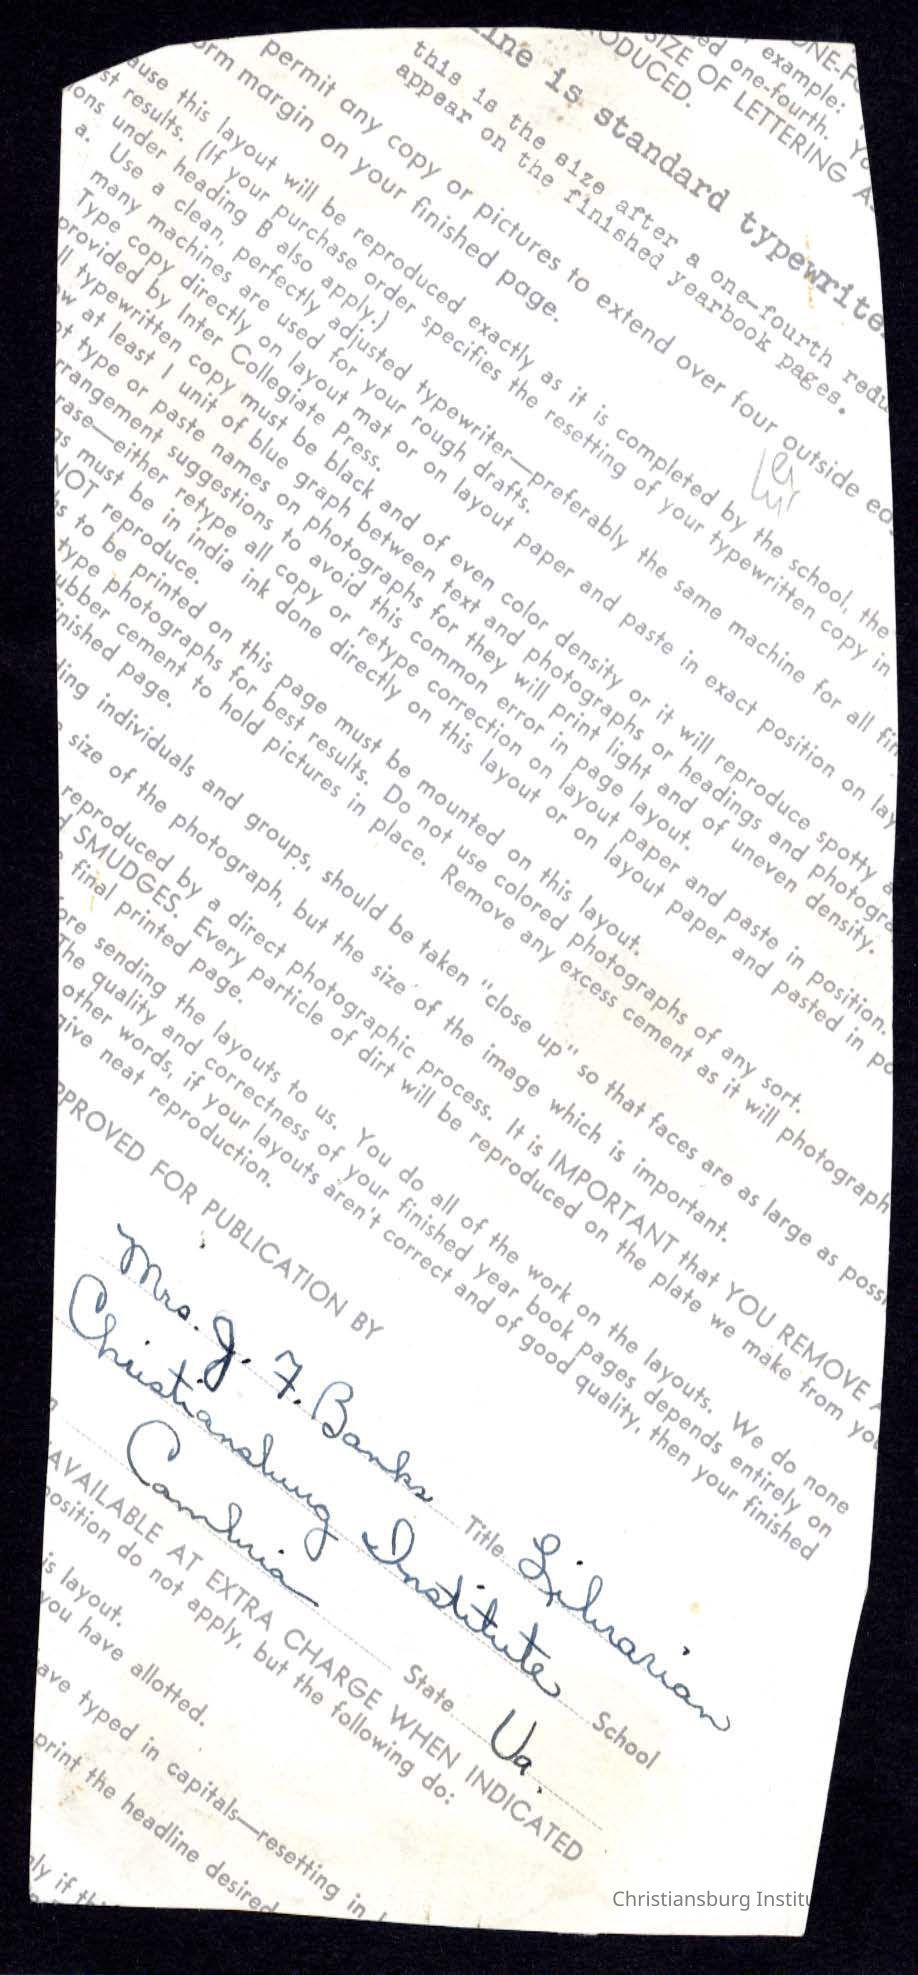 ONE-F
example:
ed one-fourth. Yo
SIZE OF LETTERING A
ODUCED.
ine is standard typewrite
this is the size after a one-fourth redu
appear on the finished yearbook pages.
permit any copy or pictures to extend over four outside ed
orm margin on your finished page.
ause this layout will be reproduced exactly as it is completed by the school, the
st results. (If your purchase order specifies the resetting of your typewritten copy in
ions under heading B also apply.)
a. Use a clean, perfectly adjusted typewriter—preferably the same machine for all fin
many machines are used for your rough drafts.
Type copy directly on layout mat or on layout paper and paste in exact position on lay
provided by Inter Collegiate Press.
ll typewritten copy must be black and of even color density or it will reproduce spotty a
ow at least 1 unit of blue graph between text and photographs or headings and photogra
ot type or paste names on photographs for they will print light and of uneven density.
rrangement suggestions to avoid this common error in page layout.
rase—either retype all copy or retype correction on layout paper and paste in position.
gs must be in india ink done directly on this layout or on layout paper and pasted in po
NOT reproduce.
hs to be printed on this page must be mounted on this layout.
type photographs for best results. Do not use colored photographs of any sort.
ubber cement to hold pictures in place. Remove any excess cement as it will photograph
inished page.
ding individuals and groups, should be taken "close up" so that faces are as large as possi
size of the photograph, but the size of the image which is important.
reproduced by a direct photographic process. It is IMPORTANT that YOU REMOVE A
d SMUDGES. Every particle of dirt will be reproduced on the plate we make from you
final printed page.
ore sending the layouts to us. You do all of the work on the layouts. We do none
The quality and correctness of your finished year book pages depends entirely on
other words, if your layouts aren't correct and of good quality, then your finished
give neat reproduction.
PPROVED FOR PUBLICATION BY
Mrs. J. F. Banks Title Librarian
Christiansburg Institute School
Cambria State Va.
AVAILABLE AT EXTRA CHARGE WHEN INDICATED
position do not apply, but the following do:
is layout.
you have allotted.
ave typed in capitals—resetting in
print the headline desired
nly if thi
Christiansburg Institu